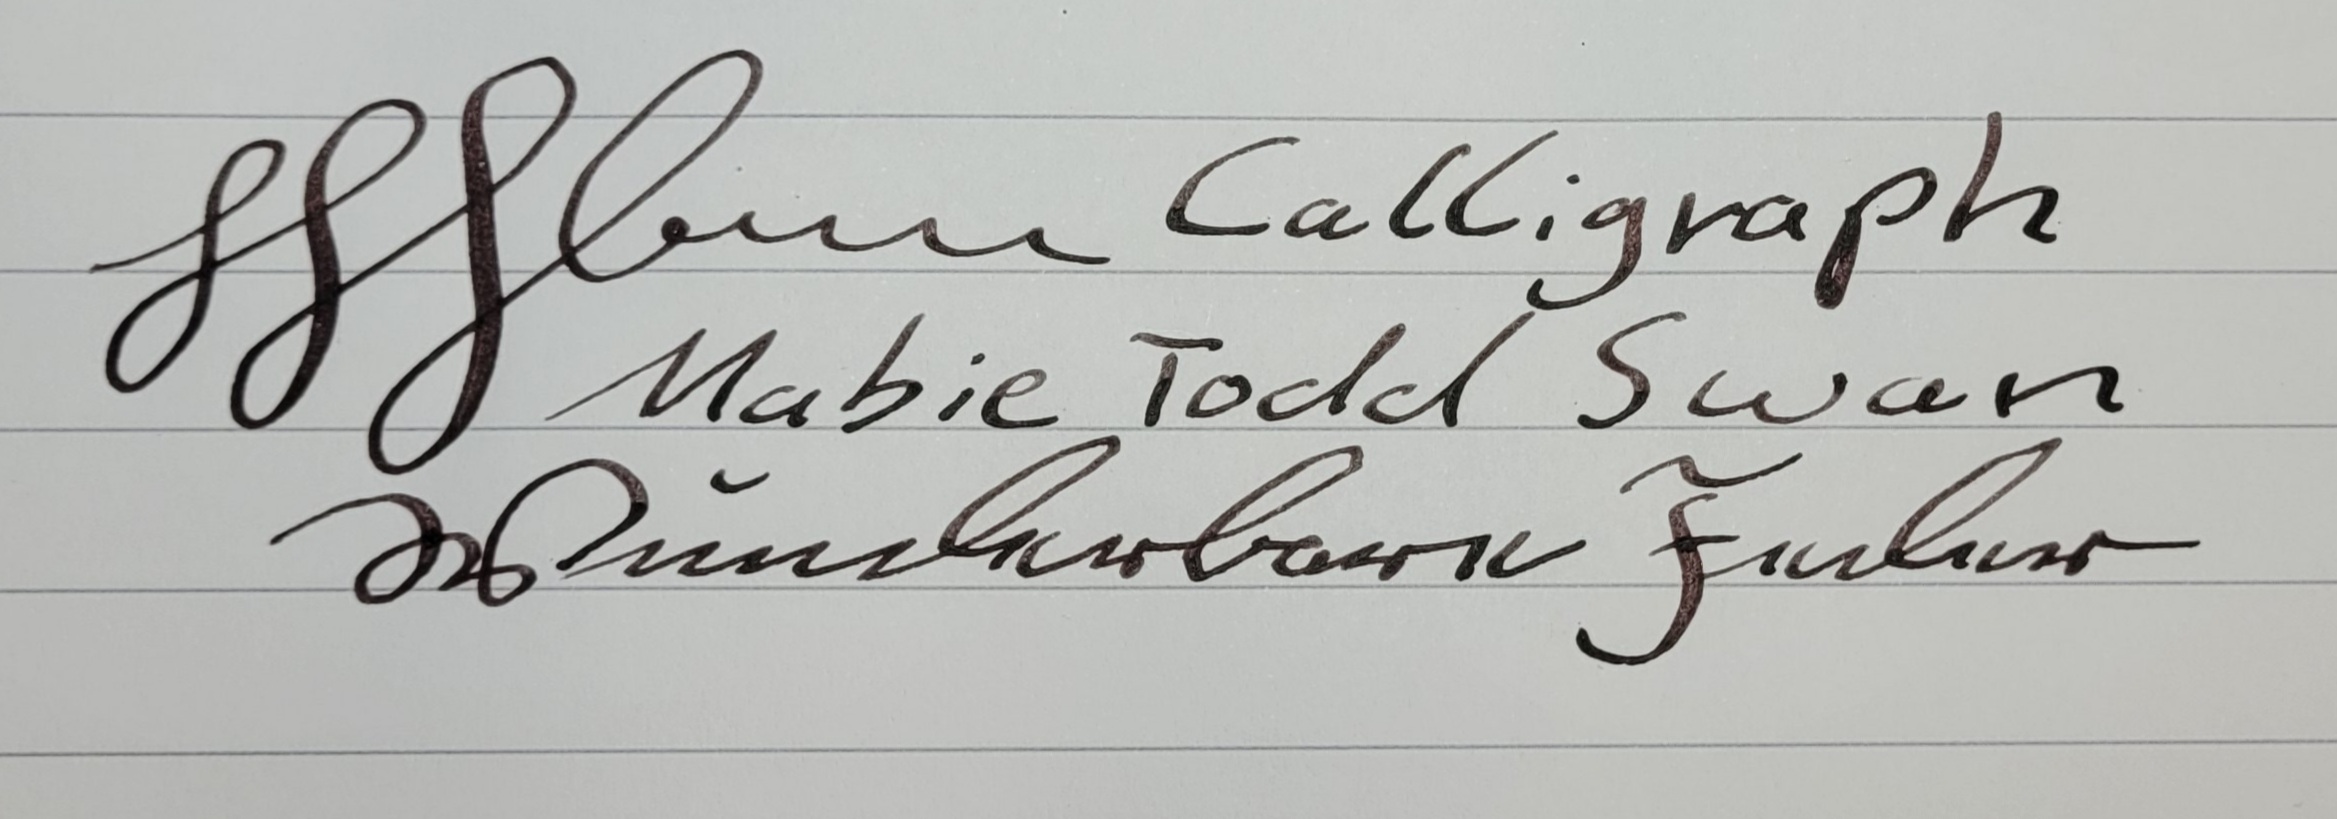 Calligraph
Mabie Todd Swan
Wunderbare Feder